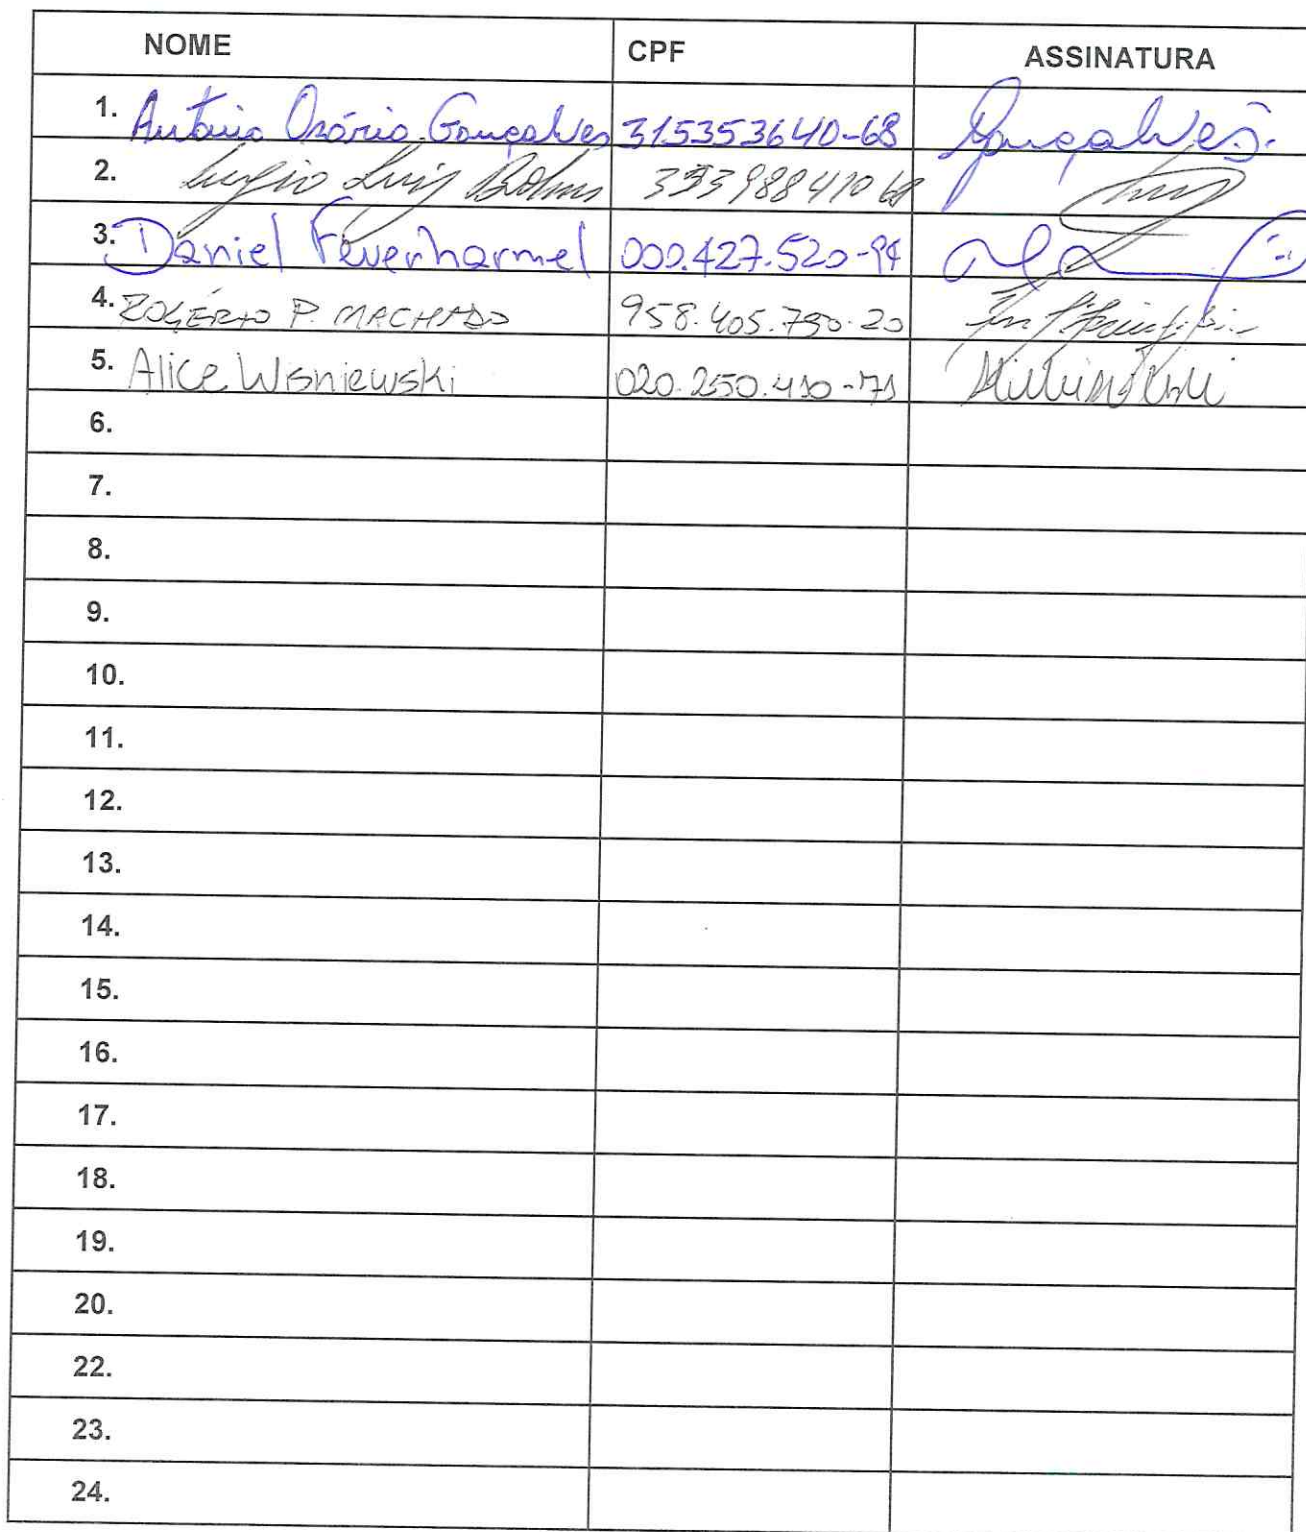 NOME CPF ASSINATURA
1. Antonio Osório Gonçalves 315353640-68 Gonçalves.
2. Luiz
3. Daniel Feverharmel 000.427.520-94
4. ROGÉRIO P. MACHADO 958.405.790-20
5. Alice Wisniewski 020.250.410-71
6.
7.
8.
9.
10.
11.
12.
13.
14.
15.
16.
17.
18.
19.
20.
22.
23.
24.